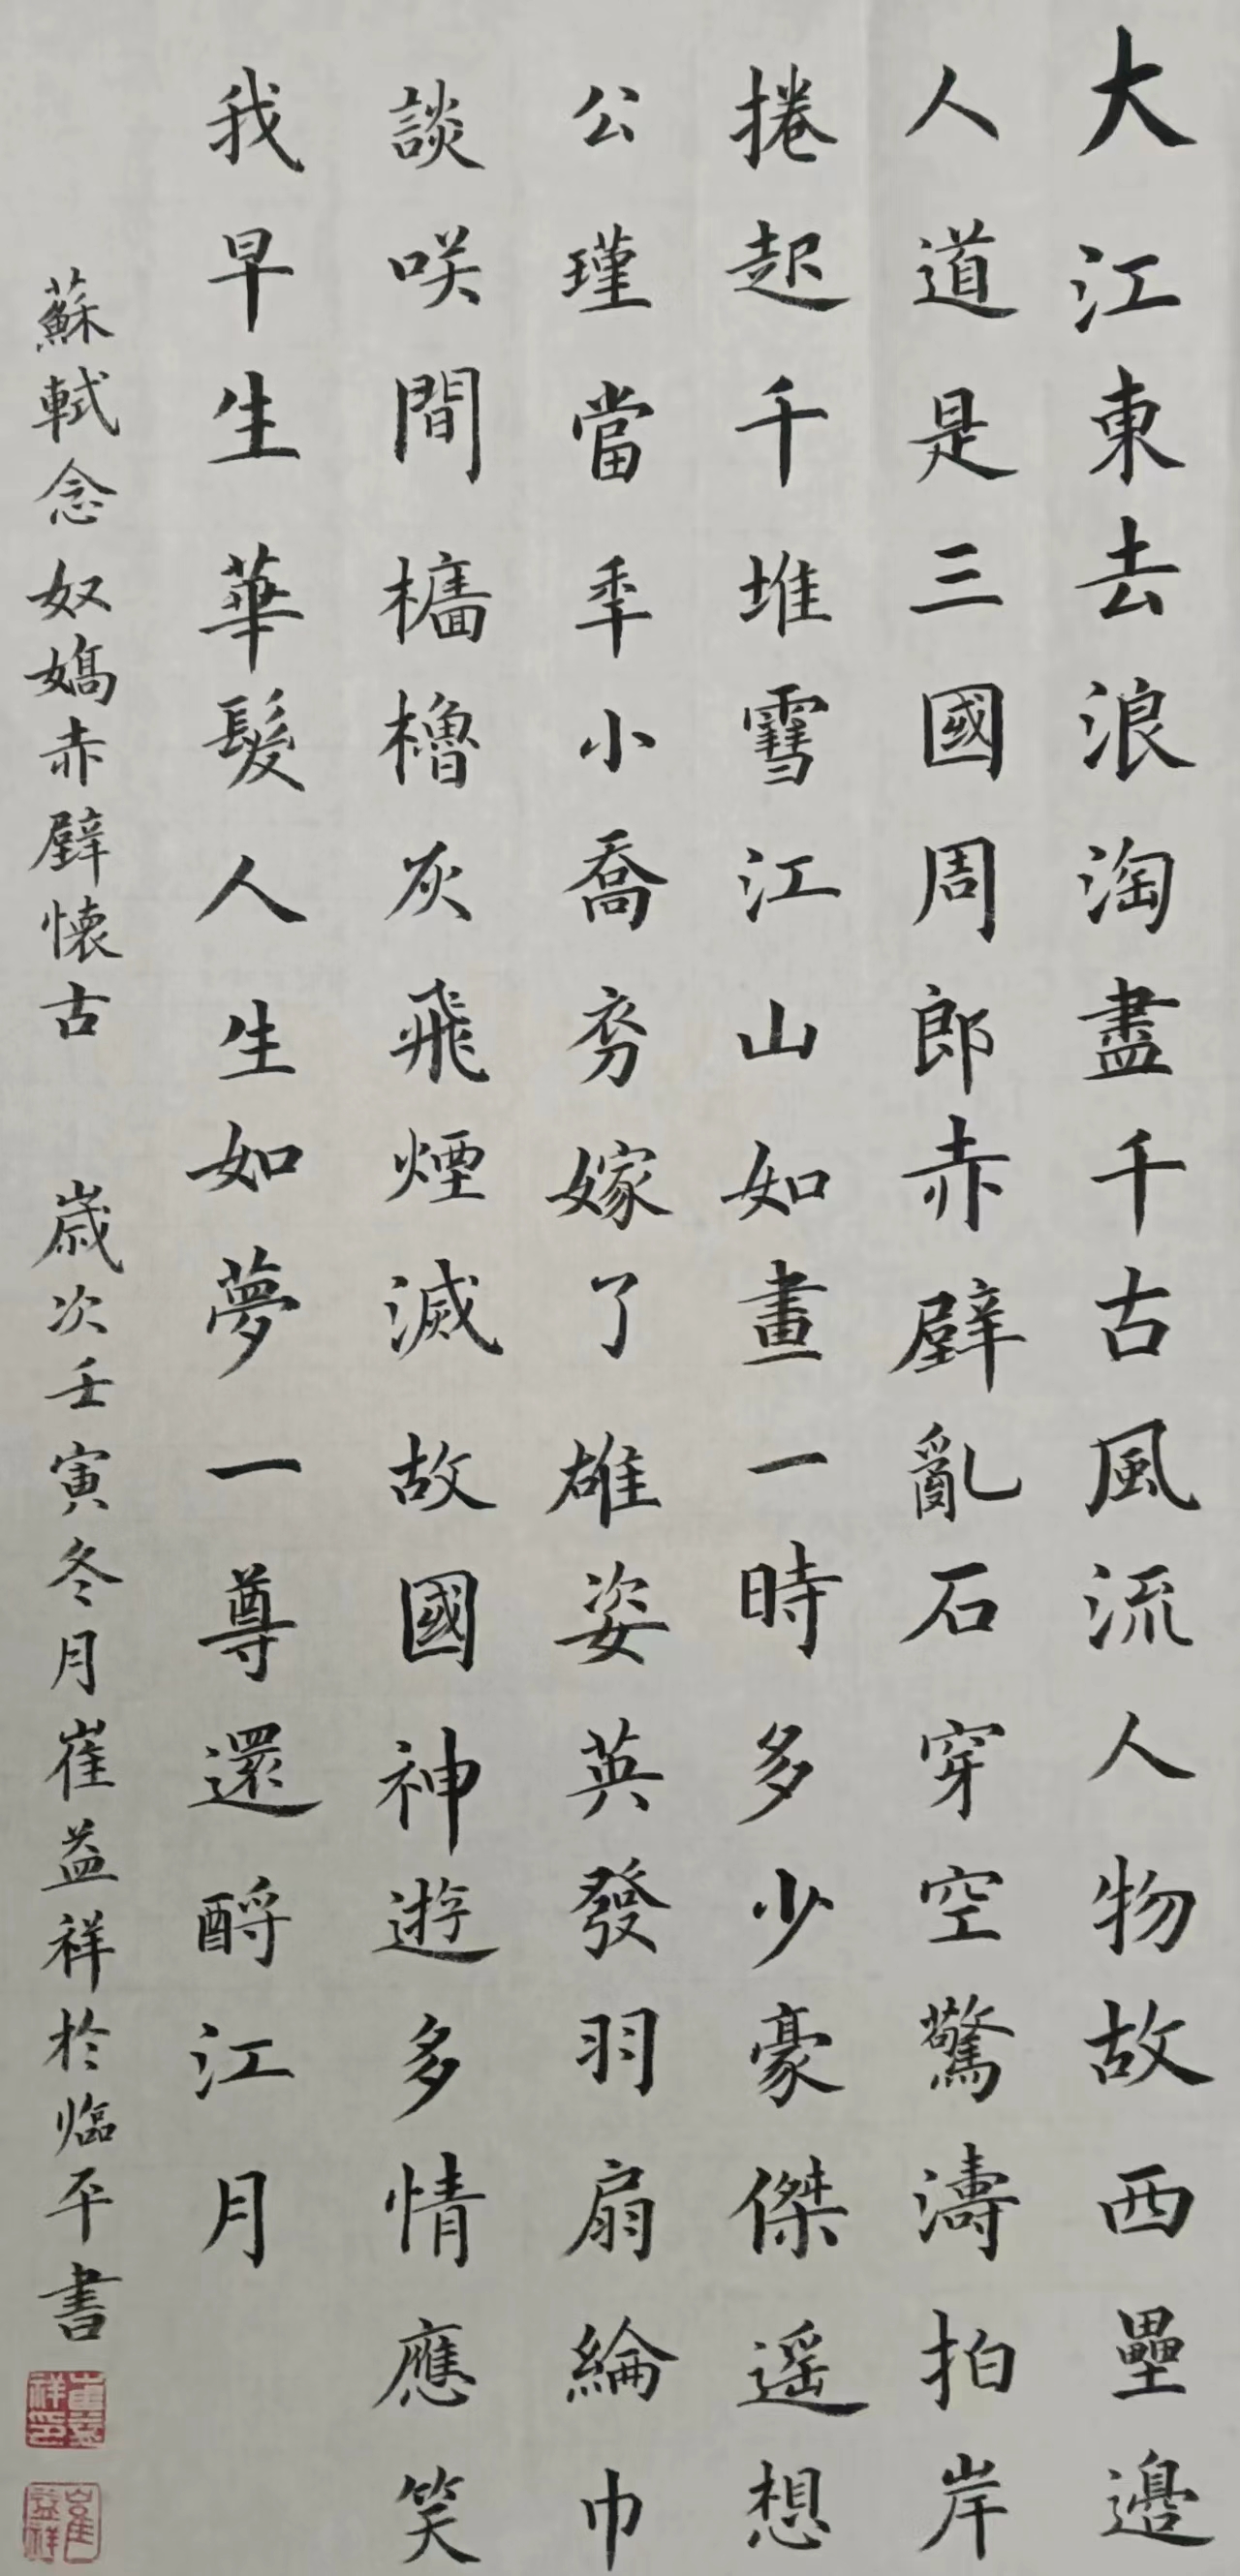 大江東去浪淘盡千古風流人物故西壘邊
人道是三國周郎赤壁亂石穿空驚濤拍岸
捲起千堆雪江山如畫一時多少豪傑遥想
公瑾當秊小喬初嫁了雄姿英發羽扇綸巾
談咲間檣櫓灰飛煙滅故國神遊多情應笑
我早生華髮人生如夢一尊還酹江月
蘇軾念奴嬌赤壁懷古 歲次壬寅冬月崔益祥於臨平書
崔益祥印
崔益祥